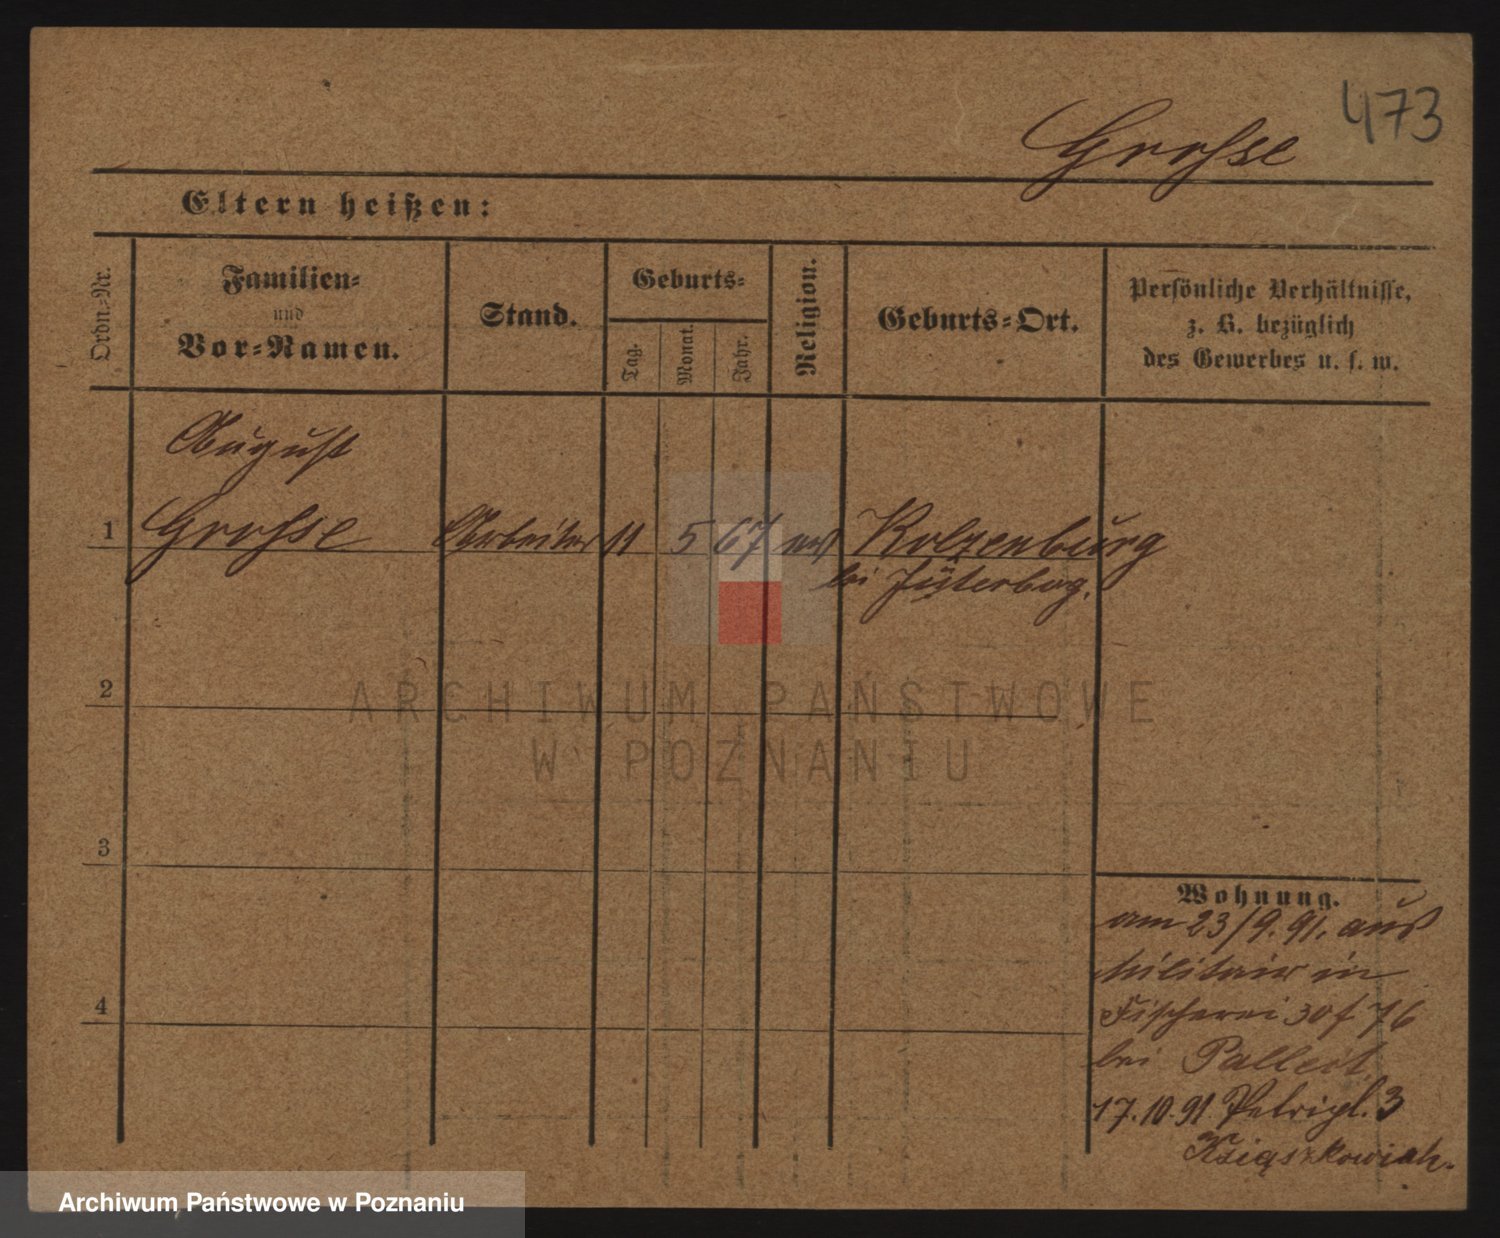 473
Grosse
Eltern heißen:
Ordn.-Nr.
Familien-
und
Vor-Namen.
Stand.
Geburts-
Tag.
Monat.
Jahr.
Religion.
Geburts-Ort.
Persönliche Verhältnisse,
z. B. bezüglich
des Gewerbes u. s. w.
August
1 Grosse Arbeiter 11 5 67 ev Kolzenburg
bei Jüterbog.
2
3
4
ARCHIWUM PAŃSTWOWE
W POZNANIU
Wohnung.
am 23/9.91. aus
Militair in
Fischerei 30 f 76
bei Pallert
17.10.91. Petripl. 3
Książkowiak.
Archiwum Państwowe w Poznaniu